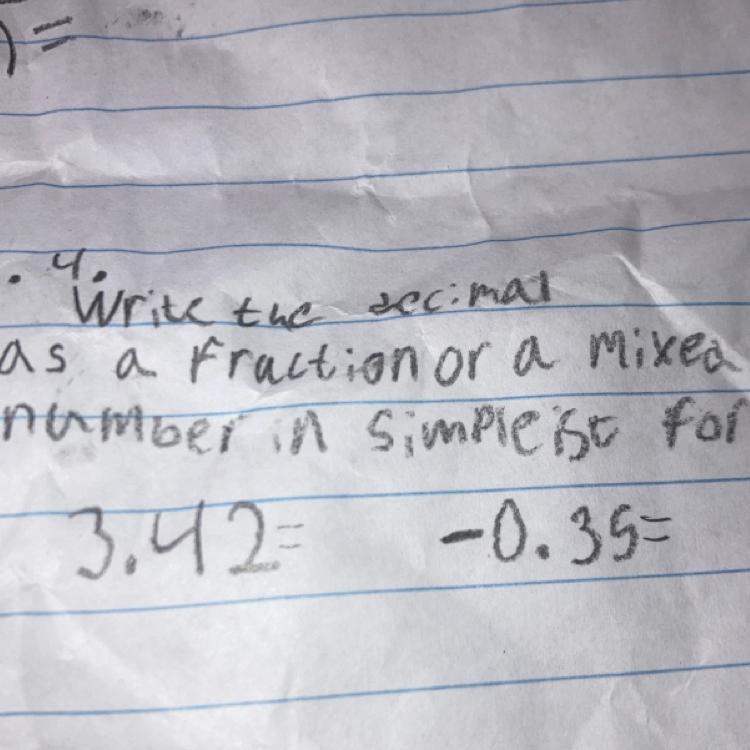 ) =
. 4.
Write the decimal
as a Fraction or a mixed
number in simpleist for
3.42= -0.35=